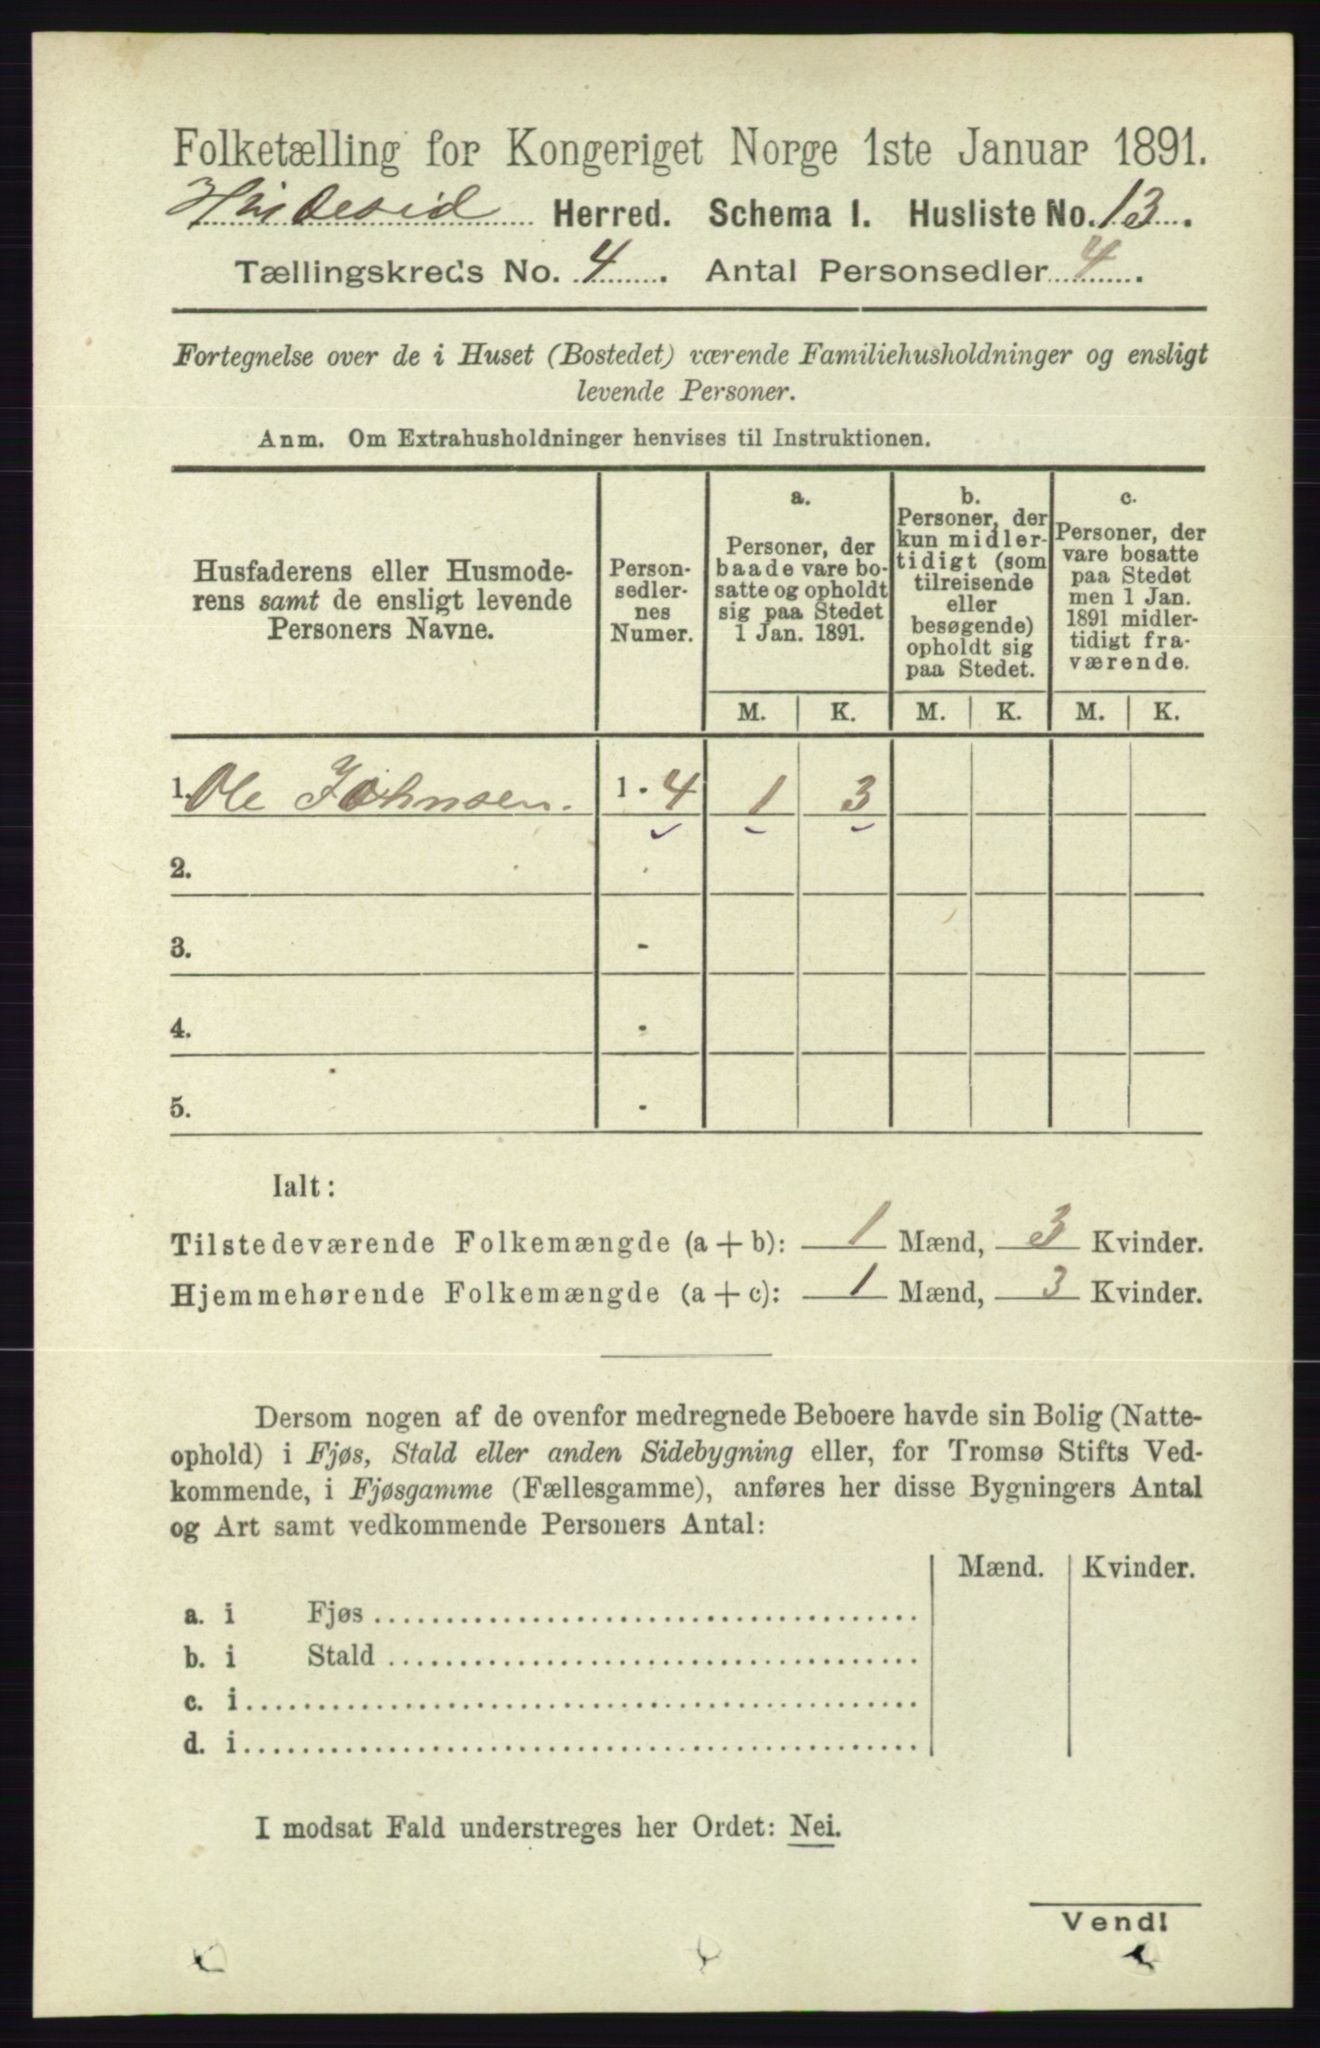 Folketælling for Kongeriget Norge 1ste Januar 1891.
Hvideseid Herred. Schema I. Husliste No. 13.
Tællingskreds No. 4. Antal Personsedler 4.
Fortegnelse over de i Huset (Bostedet) værende Familiehusholdninger og ensligt
levende Personer.
Anm. Om Extrahusholdninger henvises til Instruktionen.
Husfaderens eller Husmode-
rens samt de ensligt levende
Personers Navne.
Person-
sedler-
nes
Numer.
a.
Personer, der
baade vare bo-
satte og opholdt
sig paa Stedet
1 Jan. 1891.
b.
Personer, der
kun midler-
tidigt (som
tilreisende
eller
besøgende)
opholdt sig
paa Stedet.
c.
Personer, der
vare bosatte
paa Stedet
men 1 Jan.
1891 midler-
tidigt fra-
værende.
M. K. M. K. M. K.
1. Ole Johnsen. 1 - 4 1 3
2.
3. -
4. -
5. -
Ialt:
Tilstedeværende Folkemængde (a + b): 1 Mænd, 3 Kvinder.
Hjemmehørende Folkemængde (a + c): 1 Mænd, 3 Kvinder.
Dersom nogen af de ovenfor medregnede Beboere havde sin Bolig (Natte-
ophold) i Fjøs, Stald eller anden Sidebygning eller, for Tromsø Stifts Ved-
kommende, i Fjøsgamme (Fællesgamme), anføres her disse Bygningers Antal
og Art samt vedkommende Personers Antal:
Mænd. Kvinder.
a. i Fjøs
b. i Stald
c. i
d. i
I modsat Fald understreges her Ordet: Nei.
Vend!